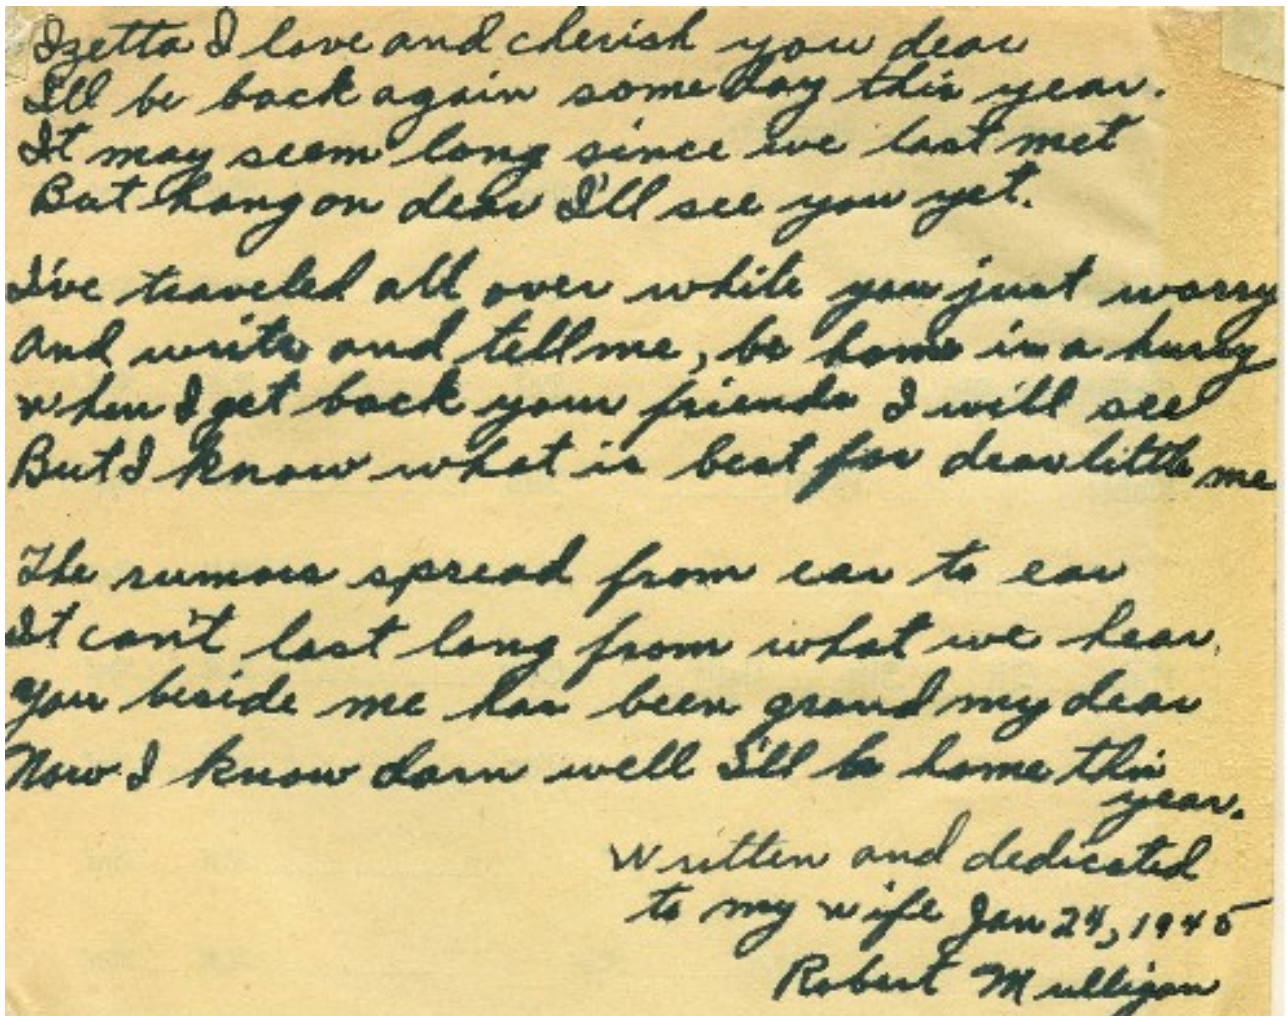 Izetta I love and cherish you dear
I'll be back again some day this year.
It may seem long since we last met
But hang on dear I'll see you yet.
I've traveled all over while you just worry
And write and tell me, be home in a hurry
When I get back your friends I will see
But I know what is best for dear little me
The rumors spread from ear to ear
It can't last long from what we hear.
You beside me has been grand my dear
Now I know darn well I'll be home this
year.
Written and dedicated
to my wife Jan 24, 1945
Robert Mulligan